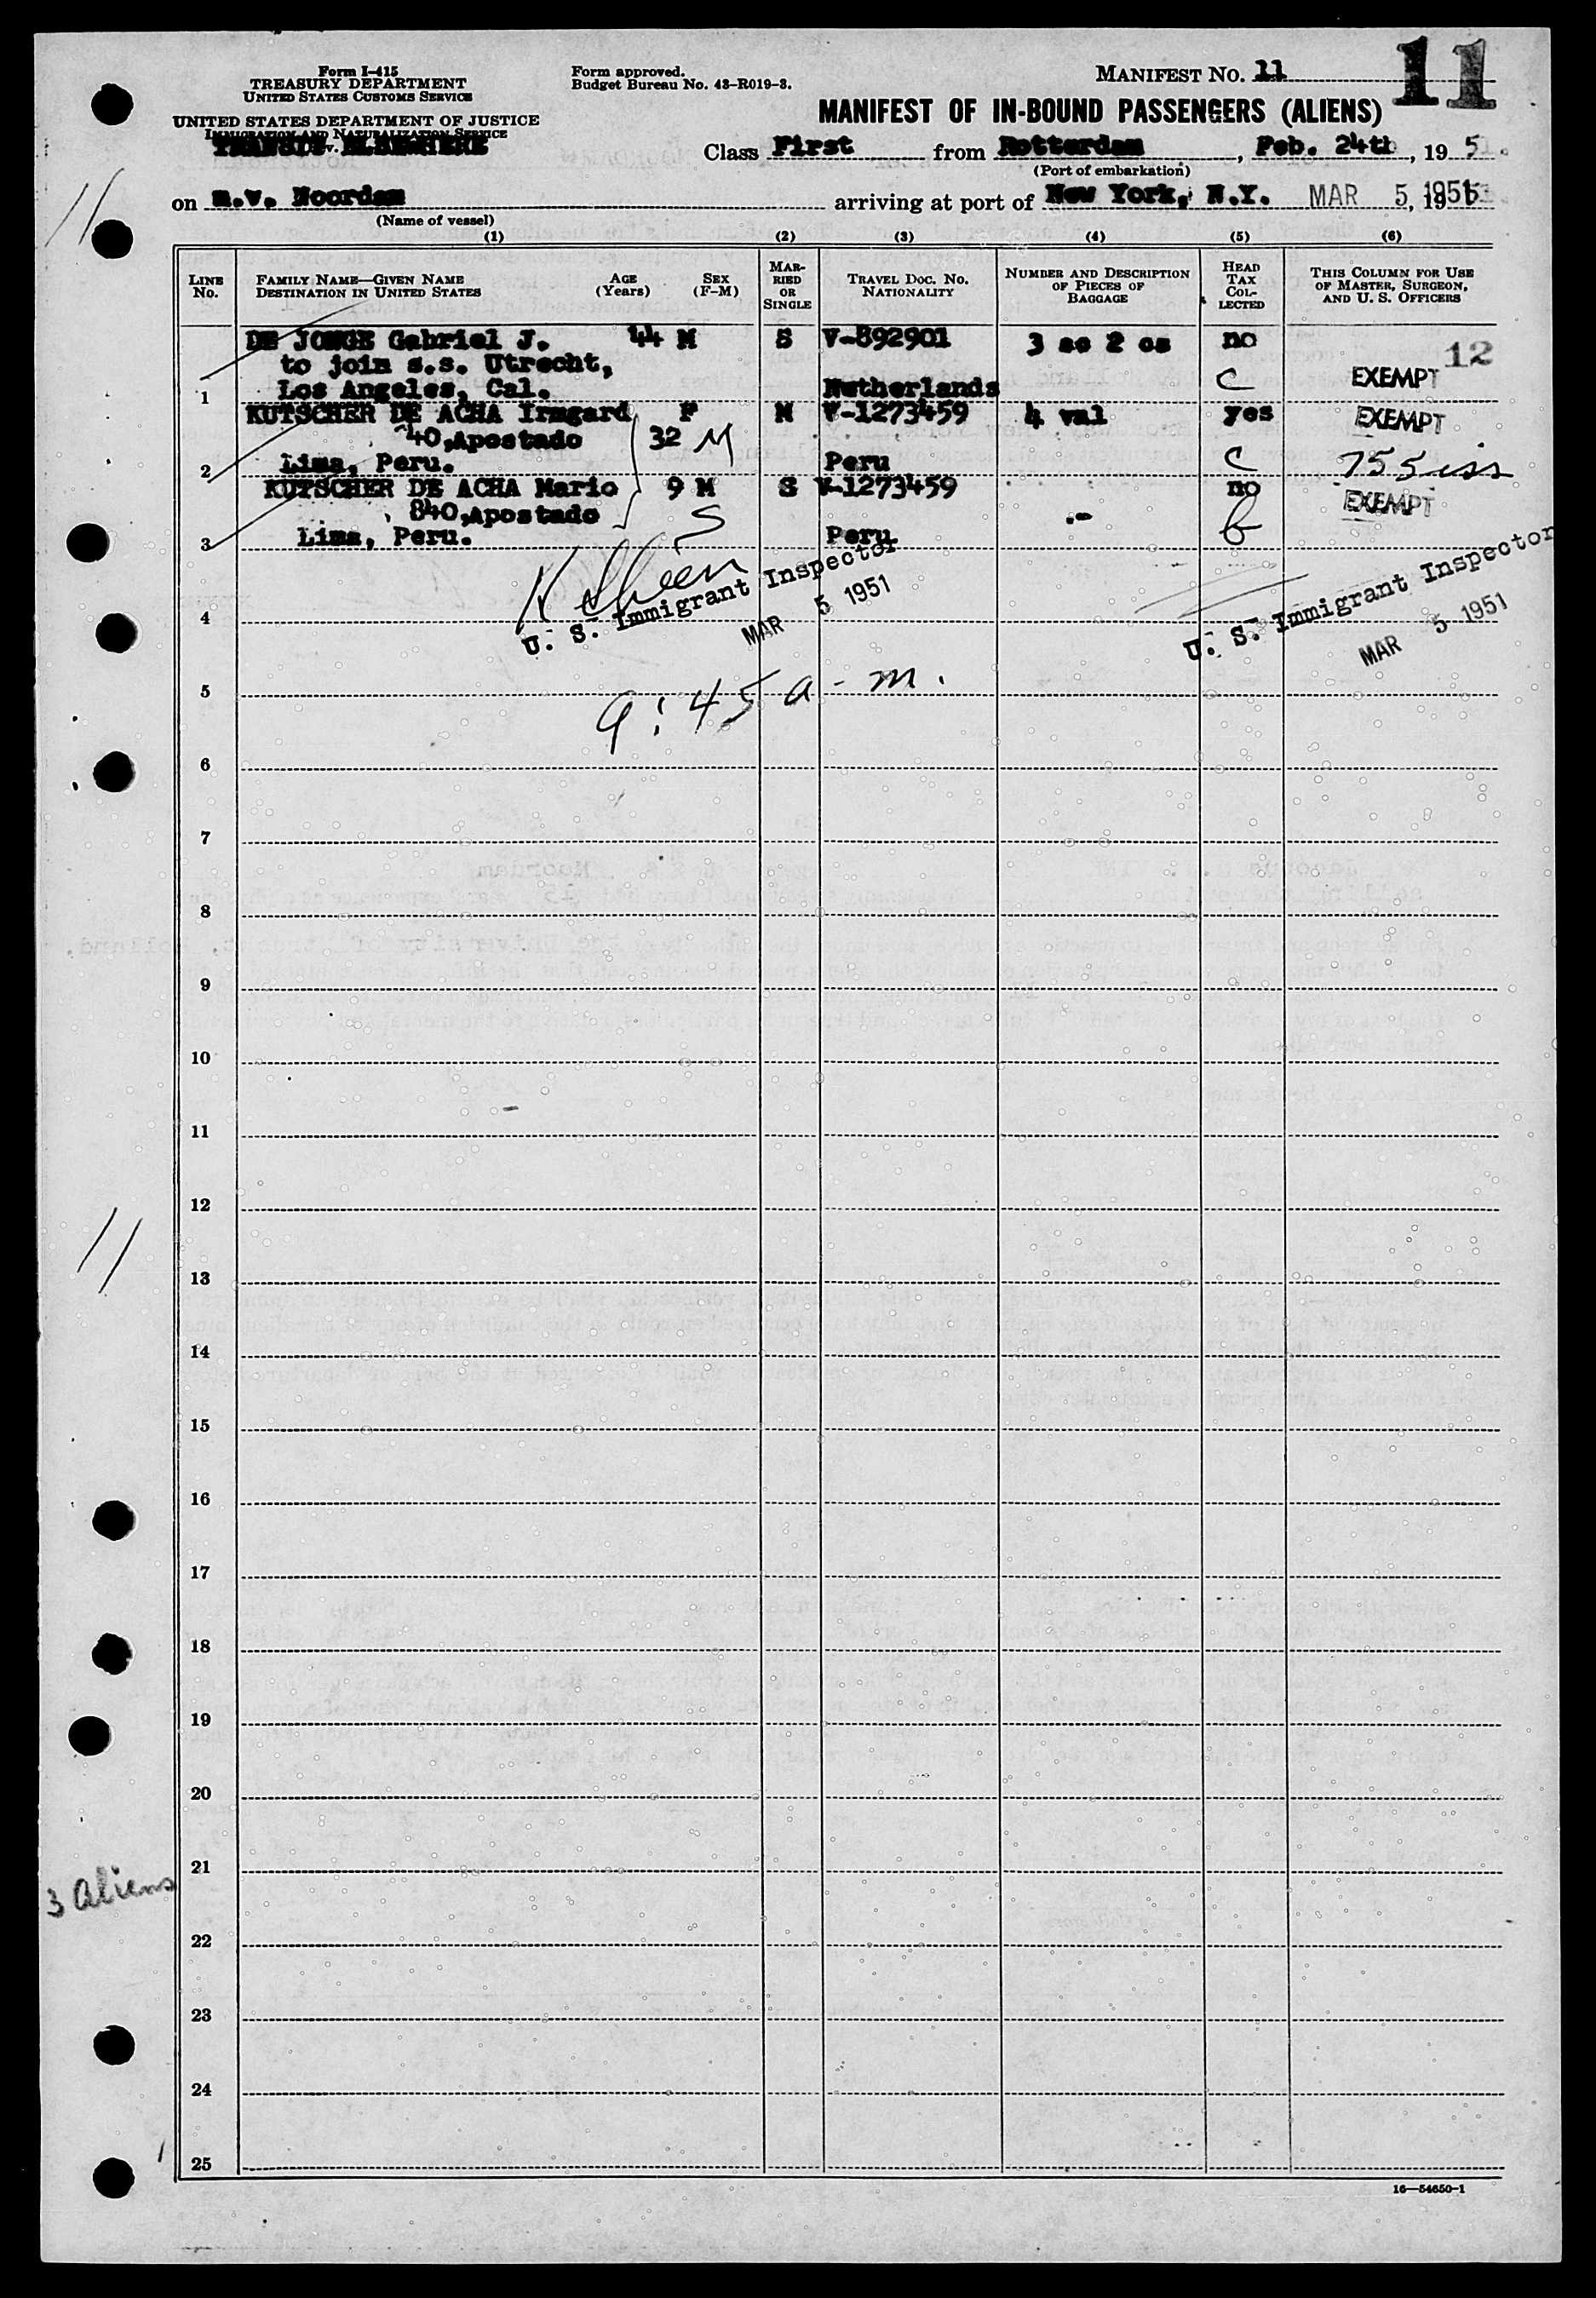 Form I-415
TREASURY DEPARTMENT
UNITED STATES CUSTOMS SERVICE
UNITED STATES DEPARTMENT OF JUSTICE
IMMIGRATION AND NATURALIZATION SERVICE
TRANSIT ELSEWHERE
Form approved.
Budget Bureau No. 43-R019-3.
MANIFEST NO. 11
11
MANIFEST OF IN-BOUND PASSENGERS (ALIENS)
Class First from Rotterdam, Feb. 24th, 19 51.
(Port of embarkation)
11
on m.v. Noordam arriving at port of New York, N.Y. MAR 5, 1951
(Name of vessel)
(1) (2) (3) (4) (5) (6)
LINE No.
FAMILY NAME—GIVEN NAME
DESTINATION IN UNITED STATES
AGE (Years)
SEX (F-M)
MARRIED OR SINGLE
TRAVEL DOC. NO. NATIONALITY
NUMBER AND DESCRIPTION OF PIECES OF BAGGAGE
HEAD TAX COLLECTED
THIS COLUMN FOR USE OF MASTER, SURGEON, AND U. S. OFFICERS
DE JONGE Gabriel J. 44 M S V-892901 3 sc 2 cs no 12
to join s.s. Utrecht,
1 Los Angeles, Cal. Netherlands C EXEMPT
KUTSCHER DE ACHA Irmgard F M V-1273459 4 val yes EXEMPT
40, Apostado 32 M
2 Lima, Peru. Peru C
KUTSCHER DE ACHA Mario 9 M S V-1273459 no EXEMPT
840, Apostado S
3 Lima, Peru. .- Peru
U. S. Immigrant Inspector
MAR 5 1951
U. S. Immigrant Inspector
MAR 5 1951
4
9:45 a-m.
5
6
7
8
9
10
11
12
11
13
14
15
16
17
18
19
20
21
3 aliens
22
23
24
25
16—54650-1